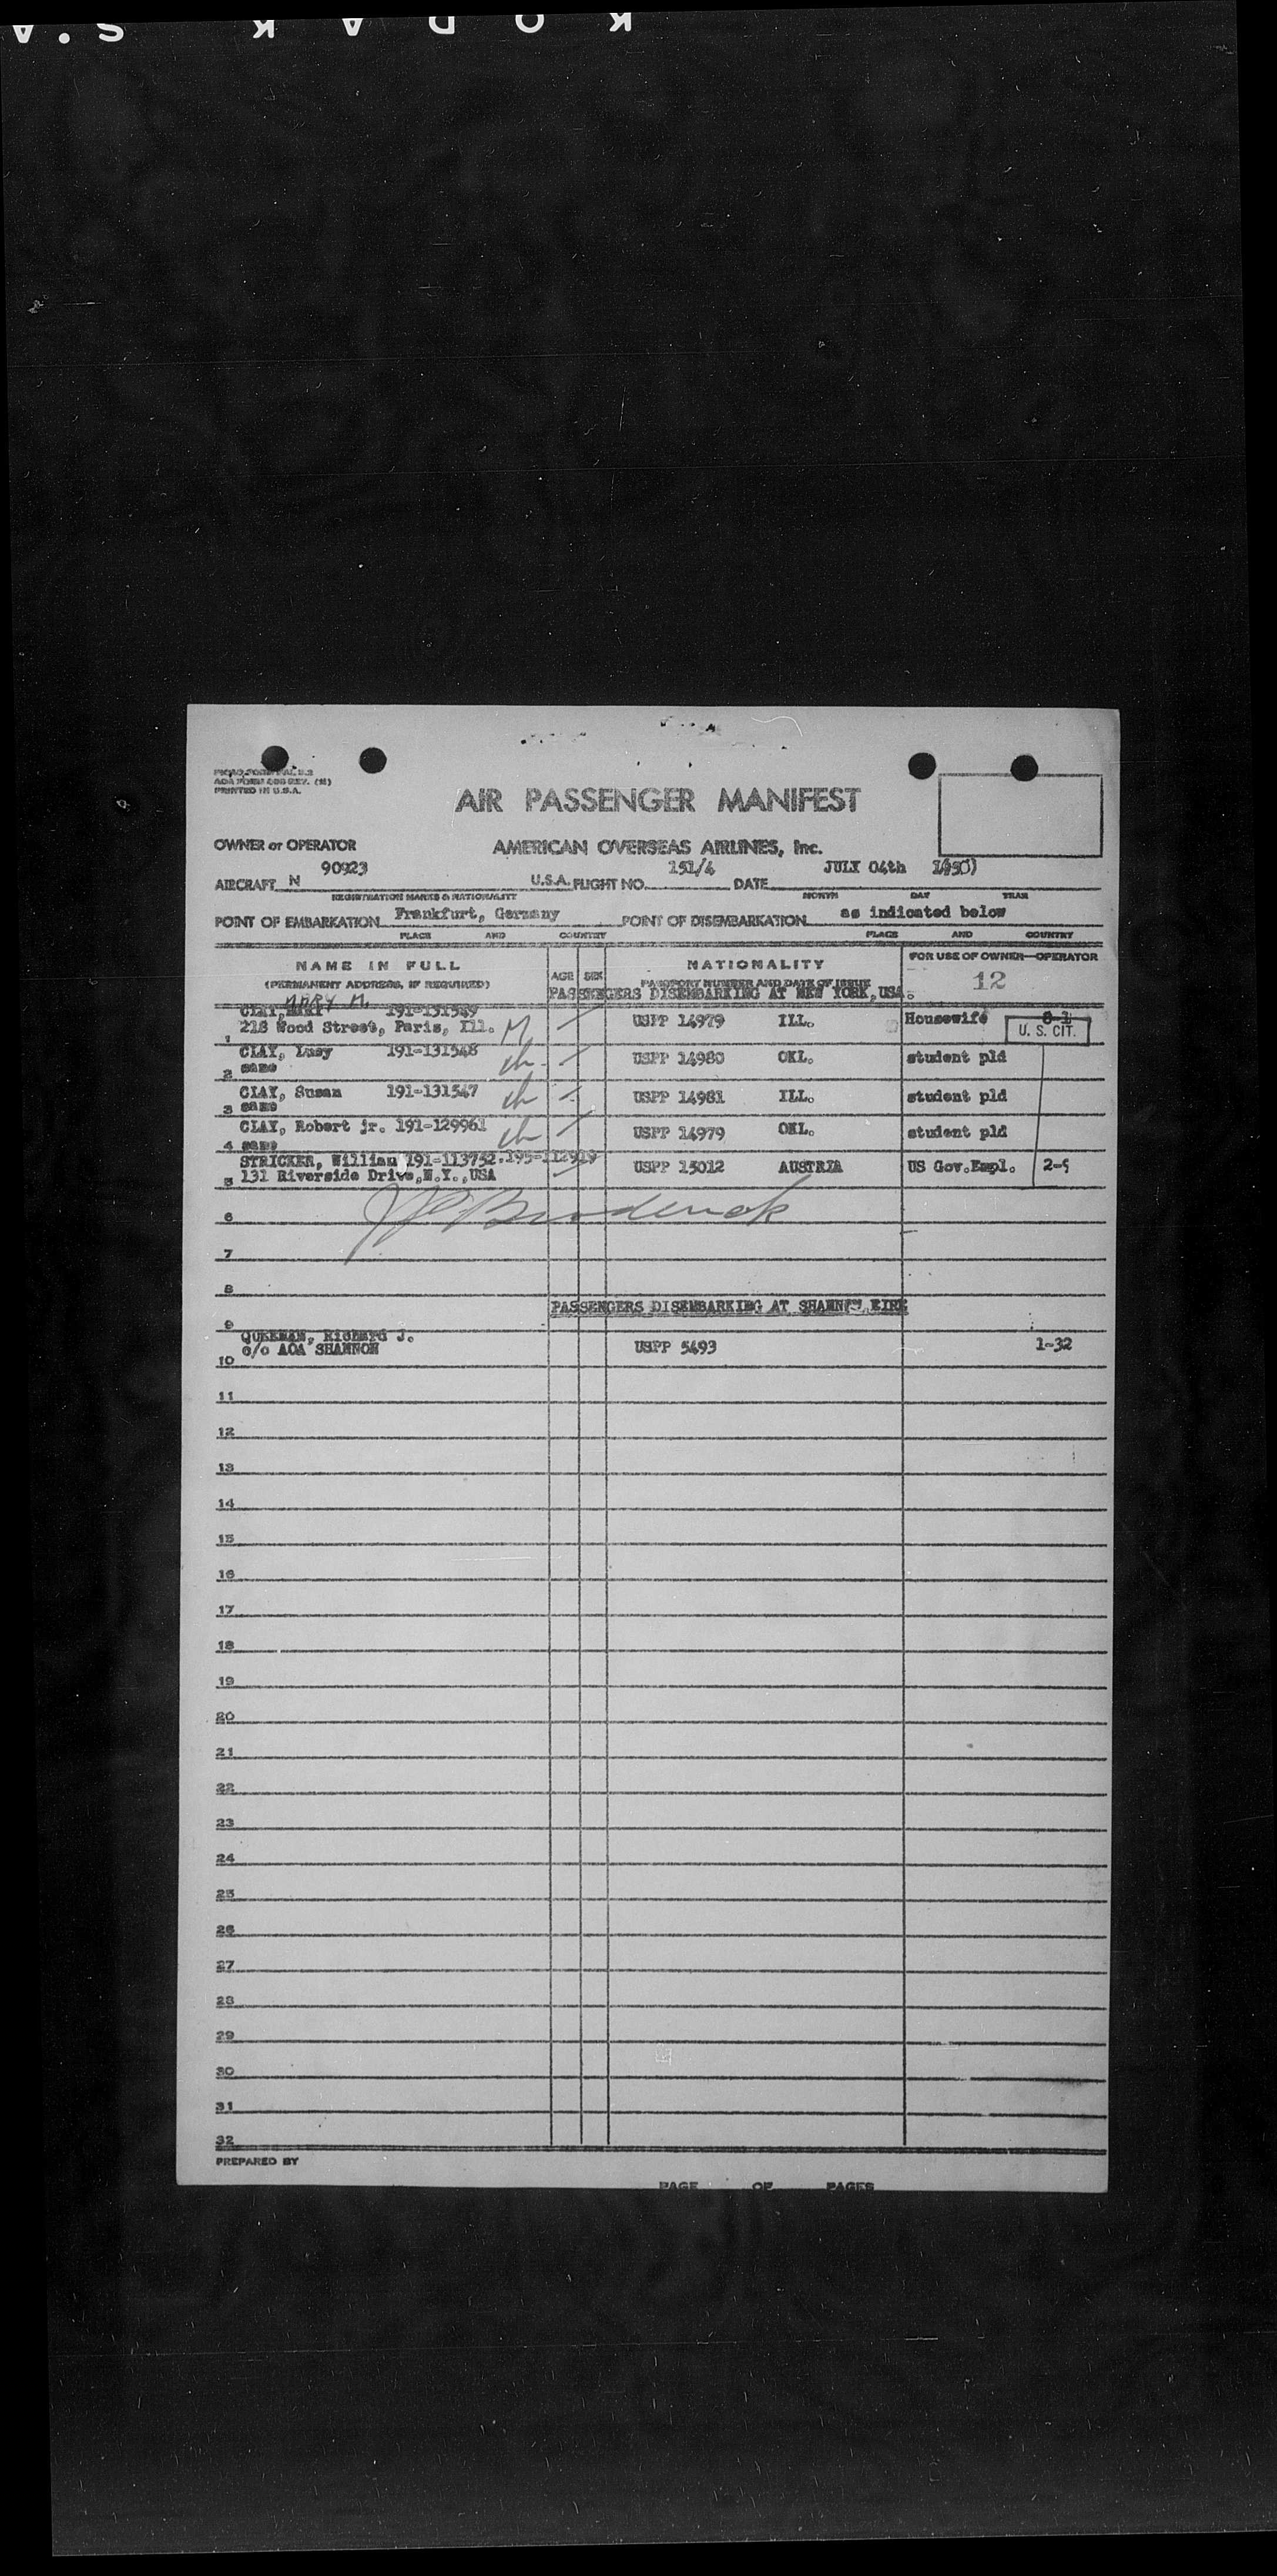 KODAK S.A
PRINTED IN U.S.A.
AIR PASSENGER MANIFEST
OWNER or OPERATOR AMERICAN OVERSEAS AIRLINES, Inc.
AIRCRAFT N 90923 U.S.A. FLIGHT NO. 151/4 DATE JULY 04th
REGISTRATION MARKS & NATIONALITY MONTH DAY YEAR
POINT OF EMBARKATION Frankfurt, Germany POINT OF DISEMBARKATION as indicated below
PLACE AND COUNTRY PLACE AND COUNTRY
NAME IN FULL AGE SEX NATIONALITY FOR USE OF OWNER—OPERATOR
(PERMANENT ADDRESS, IF REQUIRED) PASSPORT NUMBER AND DATE OF ISSUE 12
PASSENGERS DISEMBARKING AT NEW YORK, USA.
MARY M.
CLAY, 191-131549
1 218 Wood Street, Paris, Ill. M USPP 14979 ILL. Housewife U. S. CIT.
CLAY, Lucy 191-131548 ch USPP 14980 OKL. student pld
2 same
CLAY, Susan 191-131547 ch USPP 14981 ILL. student pld
3 same
CLAY, Robert jr. 191-129961 ch USPP 14979 OKL. student pld
4 same
STRICKER, Willian 191-113752
5 131 Riverside Drive, N.Y., USA USPP 15012 AUSTRIA US Gov.Empl.
6 Broderick
7
8
PASSENGERS DISEMBARKING AT EIRE
9
Richard J.
10 c/o AOA SHANNON USPP 5493 1-32
11
12
13
14
15
16
17
18
19
20
21
22
23
24
25
26
27
28
29
30
31
32
PREPARED BY
PAGE OF PAGES